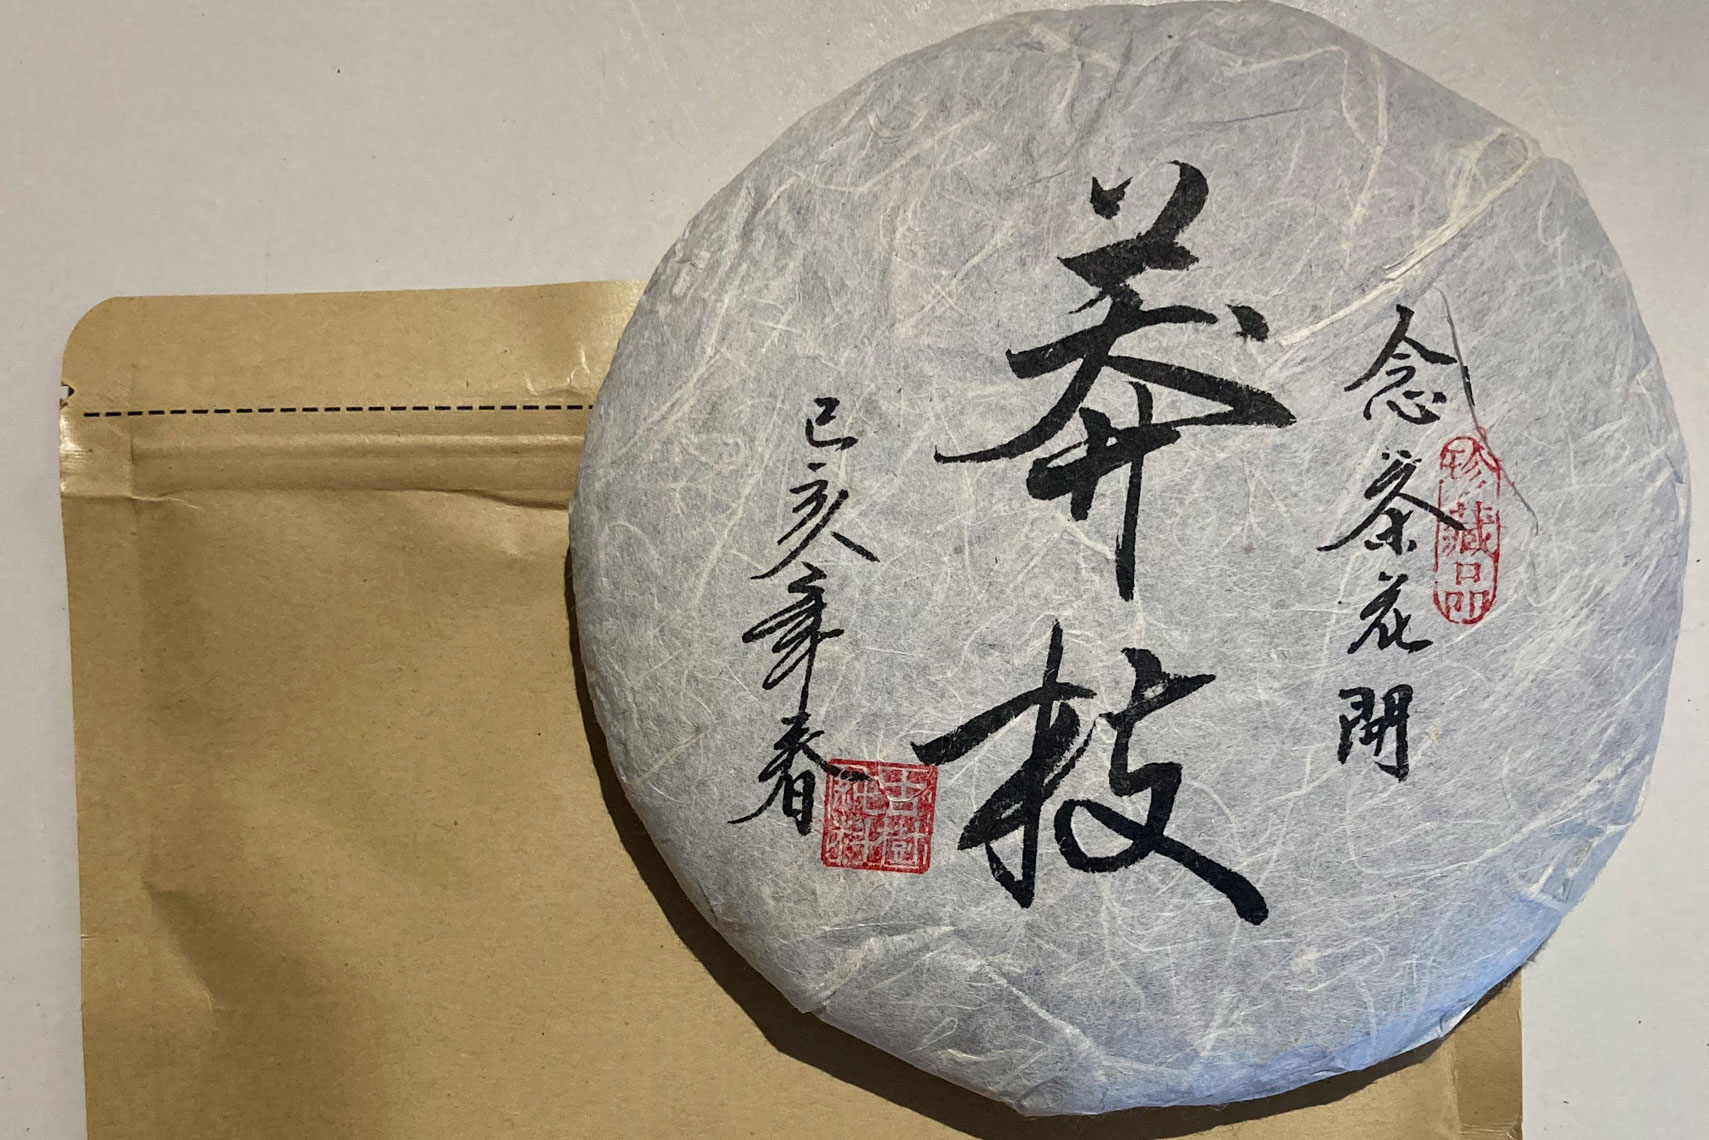 念茶花開
珍藏品
莽枝
己亥年春
古樹
純料